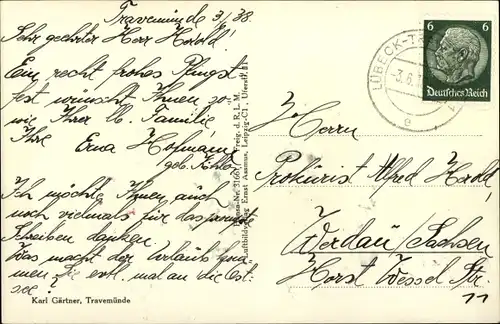 Travemünde 3/38.
Sehr geehrter Herr Herold!
Ein recht frohes Pfingst-
fest wünscht Ihnen so-
wie Ihrer lb. Familie
Ihre Erna Hofmann
geb.
Ich möchte Ihnen auch
noch vielmals für das
Schreiben danken.
Was macht der Urlaub
men Sie evtl. mal an die Ost-
see?
Karl Gärtner, Travemünde
Freig. d. R.L.M.
Luftbildverlag Ernst Assmus, Leipzig-C1, Uferstr. 11
LÜBECK-TR
-3.6.
e
6 6
Deutsches Reich
Herrn
Prokurist Alfred Herold,
Werdau/Sachsen
Horst Wessel Str.
11